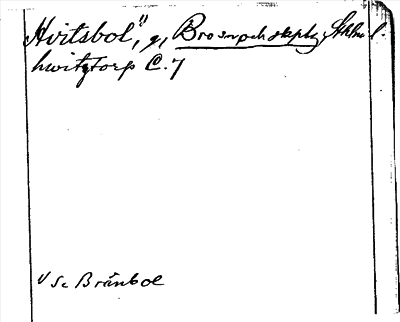 Hvitsbol", g, Brosnych skplg Skbl.
hwitztorp C. 7
V Se Brånbol